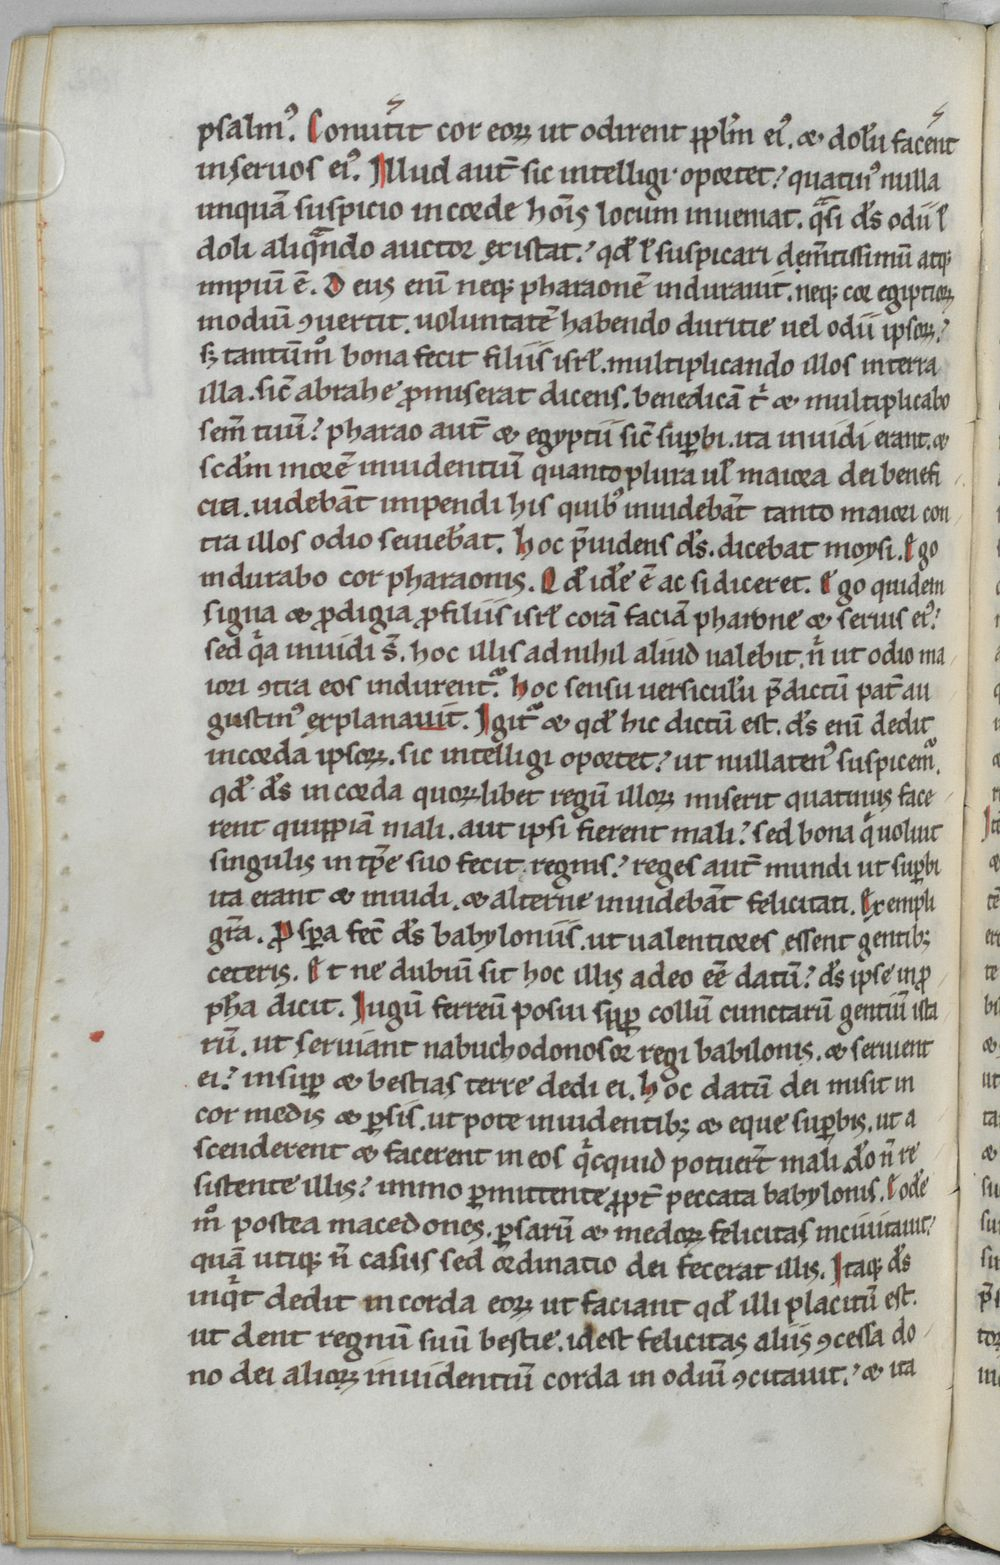 psalmꝰ. Conuͥtit cor eoꝝ ut odirent pp̄lm eiꝰ. & dolū facent
in seruos eiꝰ. Illud aut̄ sic intelligi oportet? quatinꝰ nulla
unquā suspicio in corde hoīs locum inueniat. qͣsi d̄s odii ł
doli aliqͣndo auctor existat? qđ ł suspicari dem̄tissimū atqꝫ
impiū ē. Deus enī neqꝫ pharaonē indurauit. neqꝫ cor egiptioꝝ
in odiū ꝯuertit. uoluntatē habendo duritie uel odii ipsoꝝ?
sꝫ tantūm̊ bona fecit filiis isrł. multiplicando illos in terra
illa. sic̄ abrahe ꝓmiserat dicens. benedicā tͥ & multiplicabo
sem̄ tuū? pharao aut̄ & egyptii sic̄ suꝑbi. ita inuidi erant. &
scđm morē inuidentiū quanto plura uł maiora dei benefi
cia. uidebāt impendi his quibꝰ inuidebāt tanto maiori con
tra illos odio seuiebāt. hoc p̄uidens d̄s. dicebat moysi. Ego
indurabo cor pharaonis. Qđ idē ē ac si diceret. Ego quidem
signa & ꝓdigia ꝓ filiis isrł corā faciā pharone & seruis eiꝰ?
sed qͥa inuidi s̄. hoc illis ad nihil aliud ualebit. nͥ ut odio ma
iori ꝯtra eos indurentᷣ. hoc sensu uersiculū p̄dictū pat̄ au
gustinꝰ explanauit. Igitᷣ & qđ hic dictū est. d̄s enī dedit
in corda ipsoꝝ. sic intelligi oportet? ut nullatenꝰ suspicemᷣ.
qđ d̄s in corda quoꝝlibet regū illoꝝ miserit quatinus face
rent quippiā mali. aut ipsi fierent mali? sed bona q̄ uoluit
singulis in tp̄e suo fecit regnis? reges aut̄ mundi ut suꝑbi
ita erant & inuidi. & alterne inuidebāt felicitati. Exempli
gr̄a. Pspa fec̄ d̄s babyloniis. ut ualentiores essent gentibꝫ
ceteris. Et ne dubiū sit hoc illis a deo eē datū? d̄s ipse in ꝓ
pħa dicit. Iugū ferreū posui suꝑ collū cunctarū gentiū ista
rū. ut seruiant nabuchodonosor regi babilonis. & seruient
ei? insuꝑ & bestias terre dedi ei. hoc datū dei misit in
cor medis & ꝑsis. utpote inuidentibꝫ & eque suꝑbis. ut a
scenderent & facerent in eos qͥcquid potuer̄t mali do n̄ re
sistente illis? immo ꝑmittente ꝓpt̄ peccata babylonis. Eodē
m̊ postea macedones. ꝑsarū & medoꝝ felicitas inciuitauit?
quā utiqꝫ n̄ casus sed ordinatio dei fecerat illis. Itaqꝫ d̄s
inqͥt dedit in corda eoꝝ ut faciant qđ illi placitū est.
ut dent regnū suū bestie. id est felicitas aliis ꝯcessa do
no dei alioꝝ inuidentiū corda in odiū ꝯcitauit? & ita